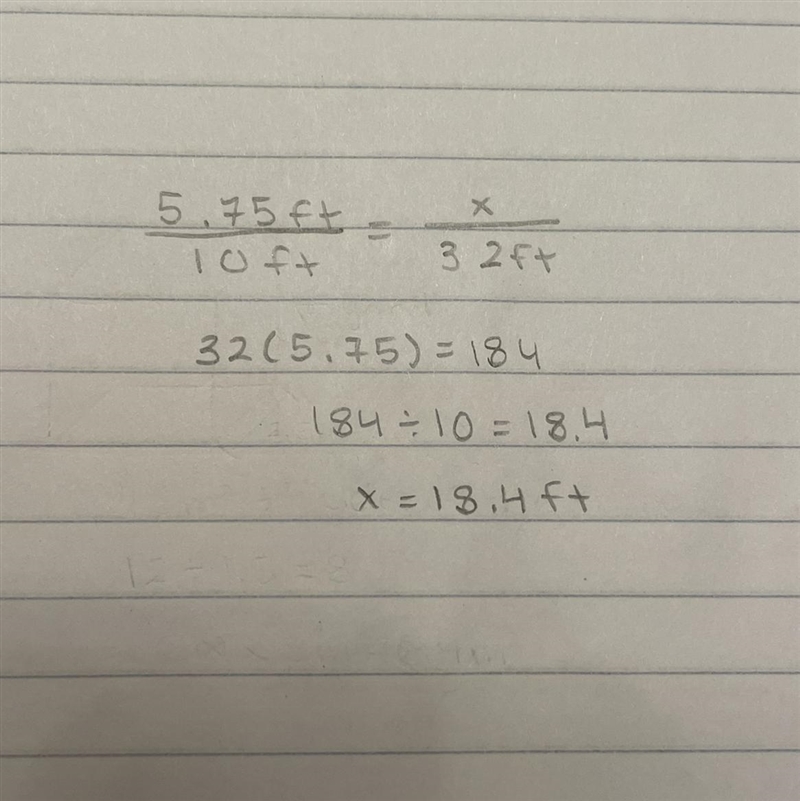 5.75ft / 10ft = x / 32ft
32(5.75)=184
184÷10=18.4
x=18.4ft